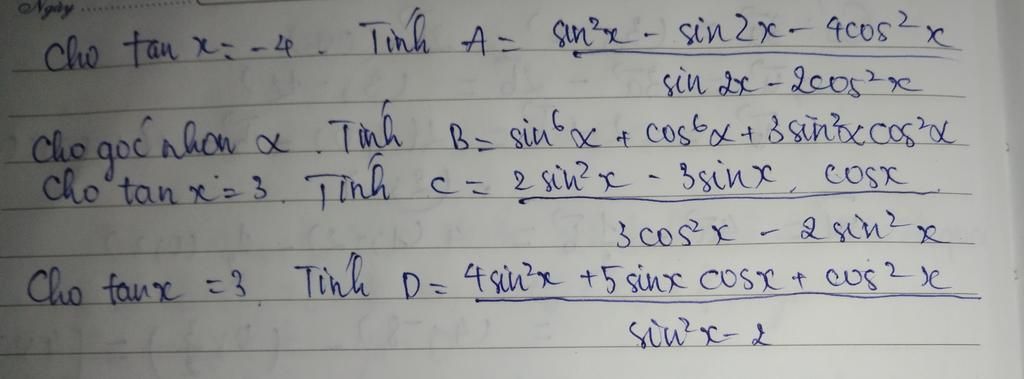 Ngày
Cho tan x = -4. Tính A = sin²x - sin2x - 4cos²x
sin 2x - 2cos²x
Cho góc nhọn α. Tính B = sin⁶α + cos⁶α + 3sin²αcos²α
Cho tan x = 3. Tính C = 2sin²x - 3sinx. cosx
3cos²x - 2sin²x
Cho tanx = 3. Tính D = 4sin²x + 5sinx cosx + cos²x
sin²x - 2